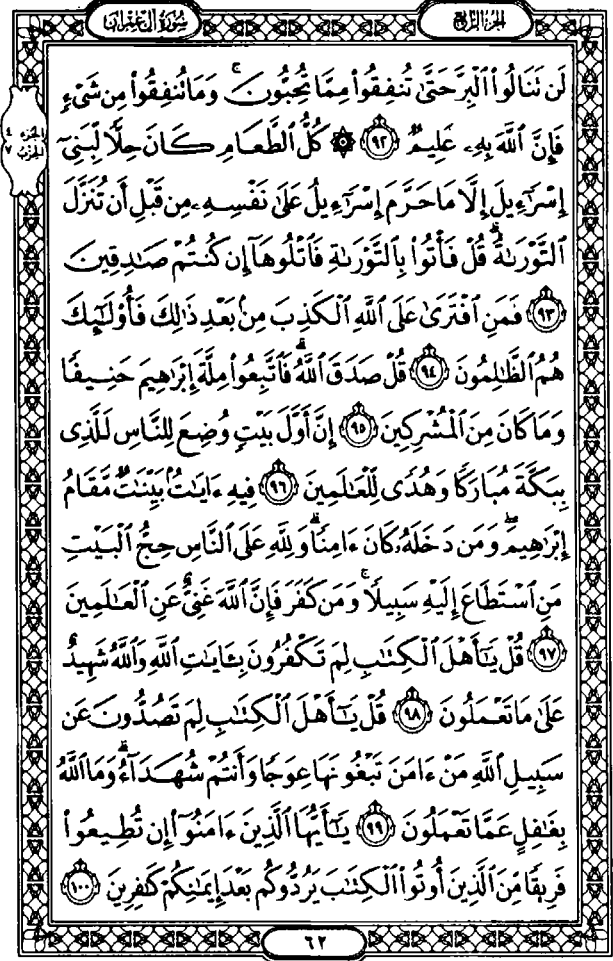 سُورَةُ آلِ عِمْرَانَ
الجُزْءُ الرَّابِعُ
لَن تَنَالُوا۟ ٱلْبِرَّ حَتَّىٰ تُنفِقُوا۟ مِمَّا تُحِبُّونَ ۚ وَمَا تُنفِقُوا۟ مِن شَىْءٍ
فَإِنَّ ٱللَّهَ بِهِۦ عَلِيمٌ ٩٢ ۞ كُلُّ ٱلطَّعَامِ كَانَ حِلًّا لِّبَنِىٓ
إِسْرَٰٓءِيلَ إِلَّا مَا حَرَّمَ إِسْرَٰٓءِيلُ عَلَىٰ نَفْسِهِۦ مِن قَبْلِ أَن تُنَزَّلَ
ٱلتَّوْرَىٰةُ ۗ قُلْ فَأْتُوا۟ بِٱلتَّوْرَىٰةِ فَٱتْلُوهَآ إِن كُنتُمْ صَٰدِقِينَ
٩٣ فَمَنِ ٱفْتَرَىٰ عَلَى ٱللَّهِ ٱلْكَذِبَ مِنۢ بَعْدِ ذَٰلِكَ فَأُو۟لَٰٓئِكَ
هُمُ ٱلظَّٰلِمُونَ ٩٤ قُلْ صَدَقَ ٱللَّهُ ۗ فَٱتَّبِعُوا۟ مِلَّةَ إِبْرَٰهِيمَ حَنِيفًا
وَمَا كَانَ مِنَ ٱلْمُشْرِكِينَ ٩٥ إِنَّ أَوَّلَ بَيْتٍ وُضِعَ لِلنَّاسِ لَلَّذِى
بِبَكَّةَ مُبَارَكًا وَهُدًى لِّلْعَٰلَمِينَ ٩٦ فِيهِ ءَايَٰتٌۢ بَيِّنَٰتٌ مَّقَامُ
إِبْرَٰهِيمَ ۖ وَمَن دَخَلَهُۥ كَانَ ءَامِنًا ۗ وَلِلَّهِ عَلَى ٱلنَّاسِ حِجُّ ٱلْبَيْتِ
مَنِ ٱسْتَطَاعَ إِلَيْهِ سَبِيلًا ۚ وَمَن كَفَرَ فَإِنَّ ٱللَّهَ غَنِىٌّ عَنِ ٱلْعَٰلَمِينَ
٩٧ قُلْ يَٰٓأَهْلَ ٱلْكِتَٰبِ لِمَ تَكْفُرُونَ بِـَٔايَٰتِ ٱللَّهِ وَٱللَّهُ شَهِيدٌ
عَلَىٰ مَا تَعْمَلُونَ ٩٨ قُلْ يَٰٓأَهْلَ ٱلْكِتَٰبِ لِمَ تَصُدُّونَ عَن
سَبِيلِ ٱللَّهِ مَنْ ءَامَنَ تَبْغُونَهَا عِوَجًا وَأَنتُمْ شُهَدَآءُ ۗ وَمَا ٱللَّهُ
بِغَٰفِلٍ عَمَّا تَعْمَلُونَ ٩٩ يَٰٓأَيُّهَا ٱلَّذِينَ ءَامَنُوٓا۟ إِن تُطِيعُوا۟
فَرِيقًا مِّنَ ٱلَّذِينَ أُوتُوا۟ ٱلْكِتَٰبَ يَرُدُّوكُم بَعْدَ إِيمَٰنِكُمْ كَٰفِرِينَ ١٠٠
٦٢